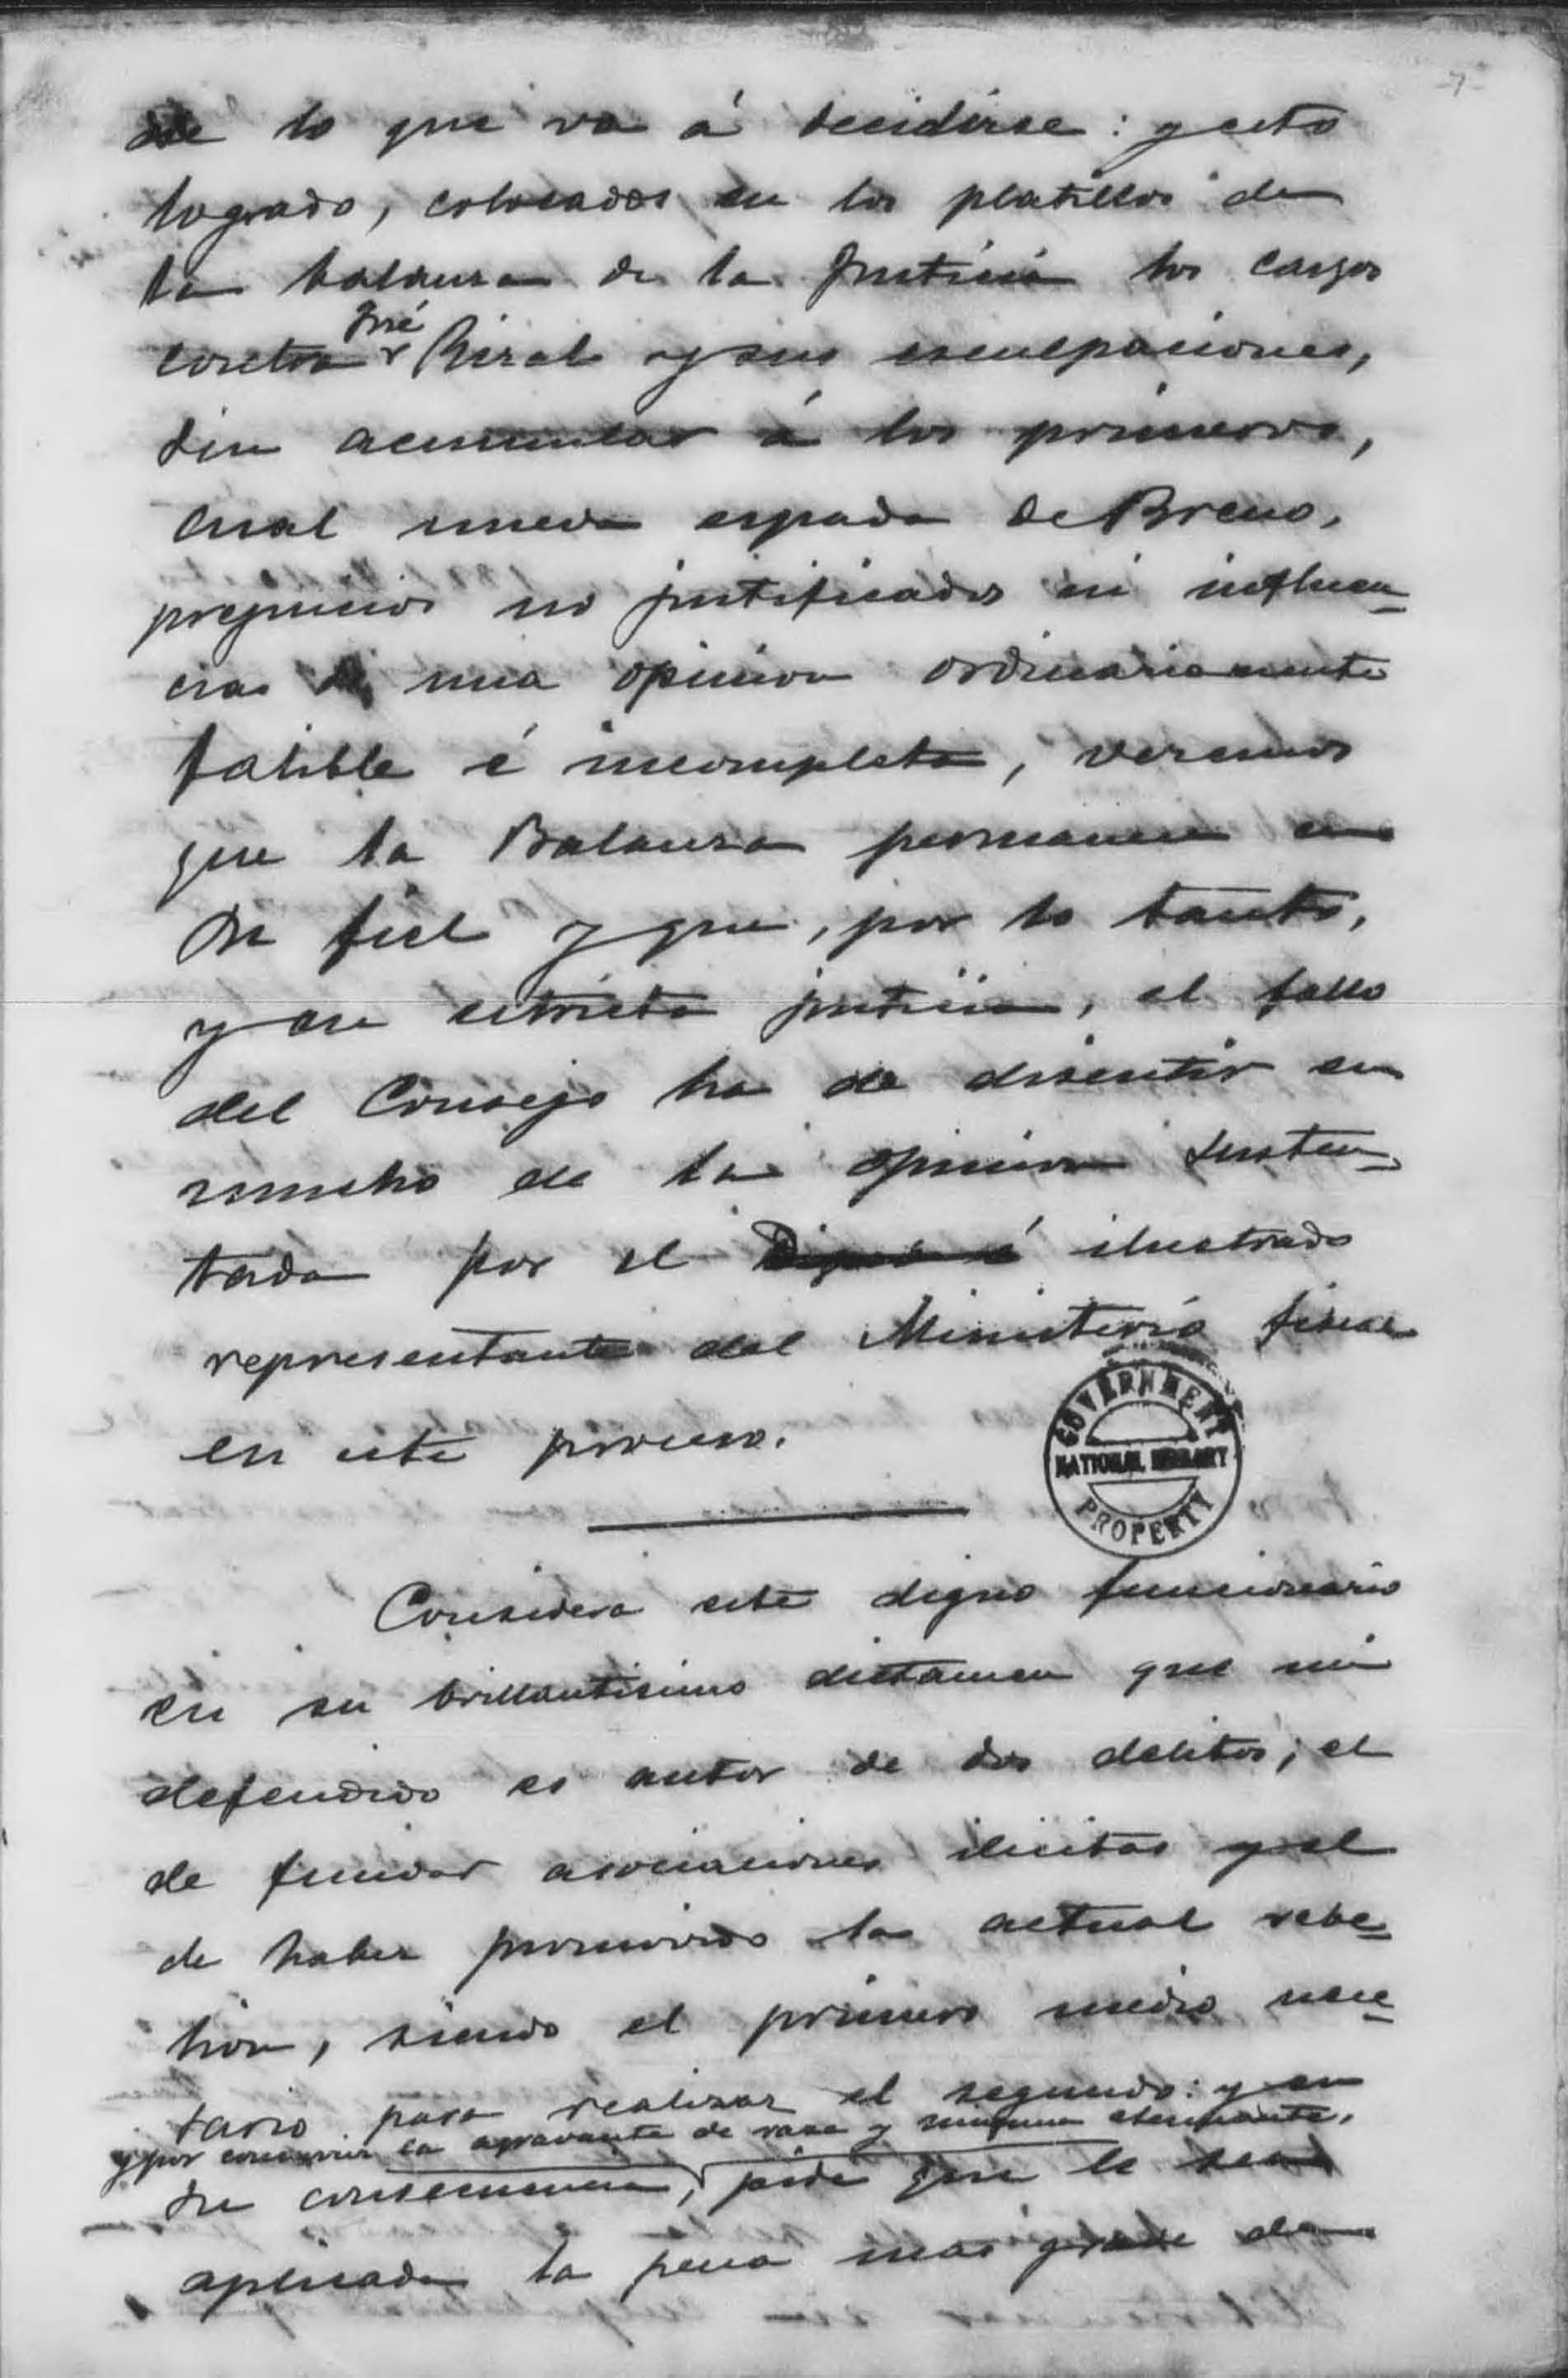 -7-
de lo que va á decidirse: y esto
logrado, colocados en los platillos de
la balanza de la Justicia los cargos
José
contra Rizal y sus exculpaciones,
sin acumular á los primeros,
cual nueva espada de Breno,
prejuicios no justificados ni influen-
cias de una opinion ordinariamente
falible é incompleta, veremos
que la Balanza permanece en
su fiel y que, por lo tanto,
y en estricta justicia, el fallo
del Consejo ha de disentir en
mucho de la opinion susten-
tada por el digno é ilustrado
representante del Ministerio fiscal
en este proceso.
GOVERNMENT
NATIONAL LIBRARY
PROPERTY
Considera este digno funcionario
en su brillantisimo dictamen que mi
defendido es autor de dos delitos; el
de fundar asociaciones ilicitas y el
de haber promovido la actual rebe-
lion, siendo el primero medio nece-
sario para realizar el segundo: y en
y por concurrir la agravante de raza y ninguna atenuante,
su consecuencia, pide que le sea
aplicada la pena mas grave de